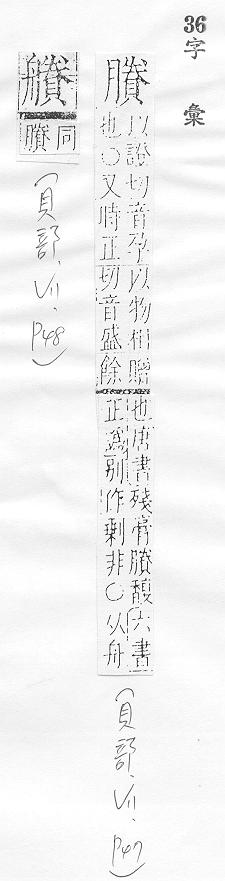 36
字彙
賸
以證切音孕以物相贈
也○又時正切音盛餘
也唐書殘膏賸馥六書
正譌別作剩非○从舟
(貝部, VII, P47)
同
賸
(貝部, VII, P48)